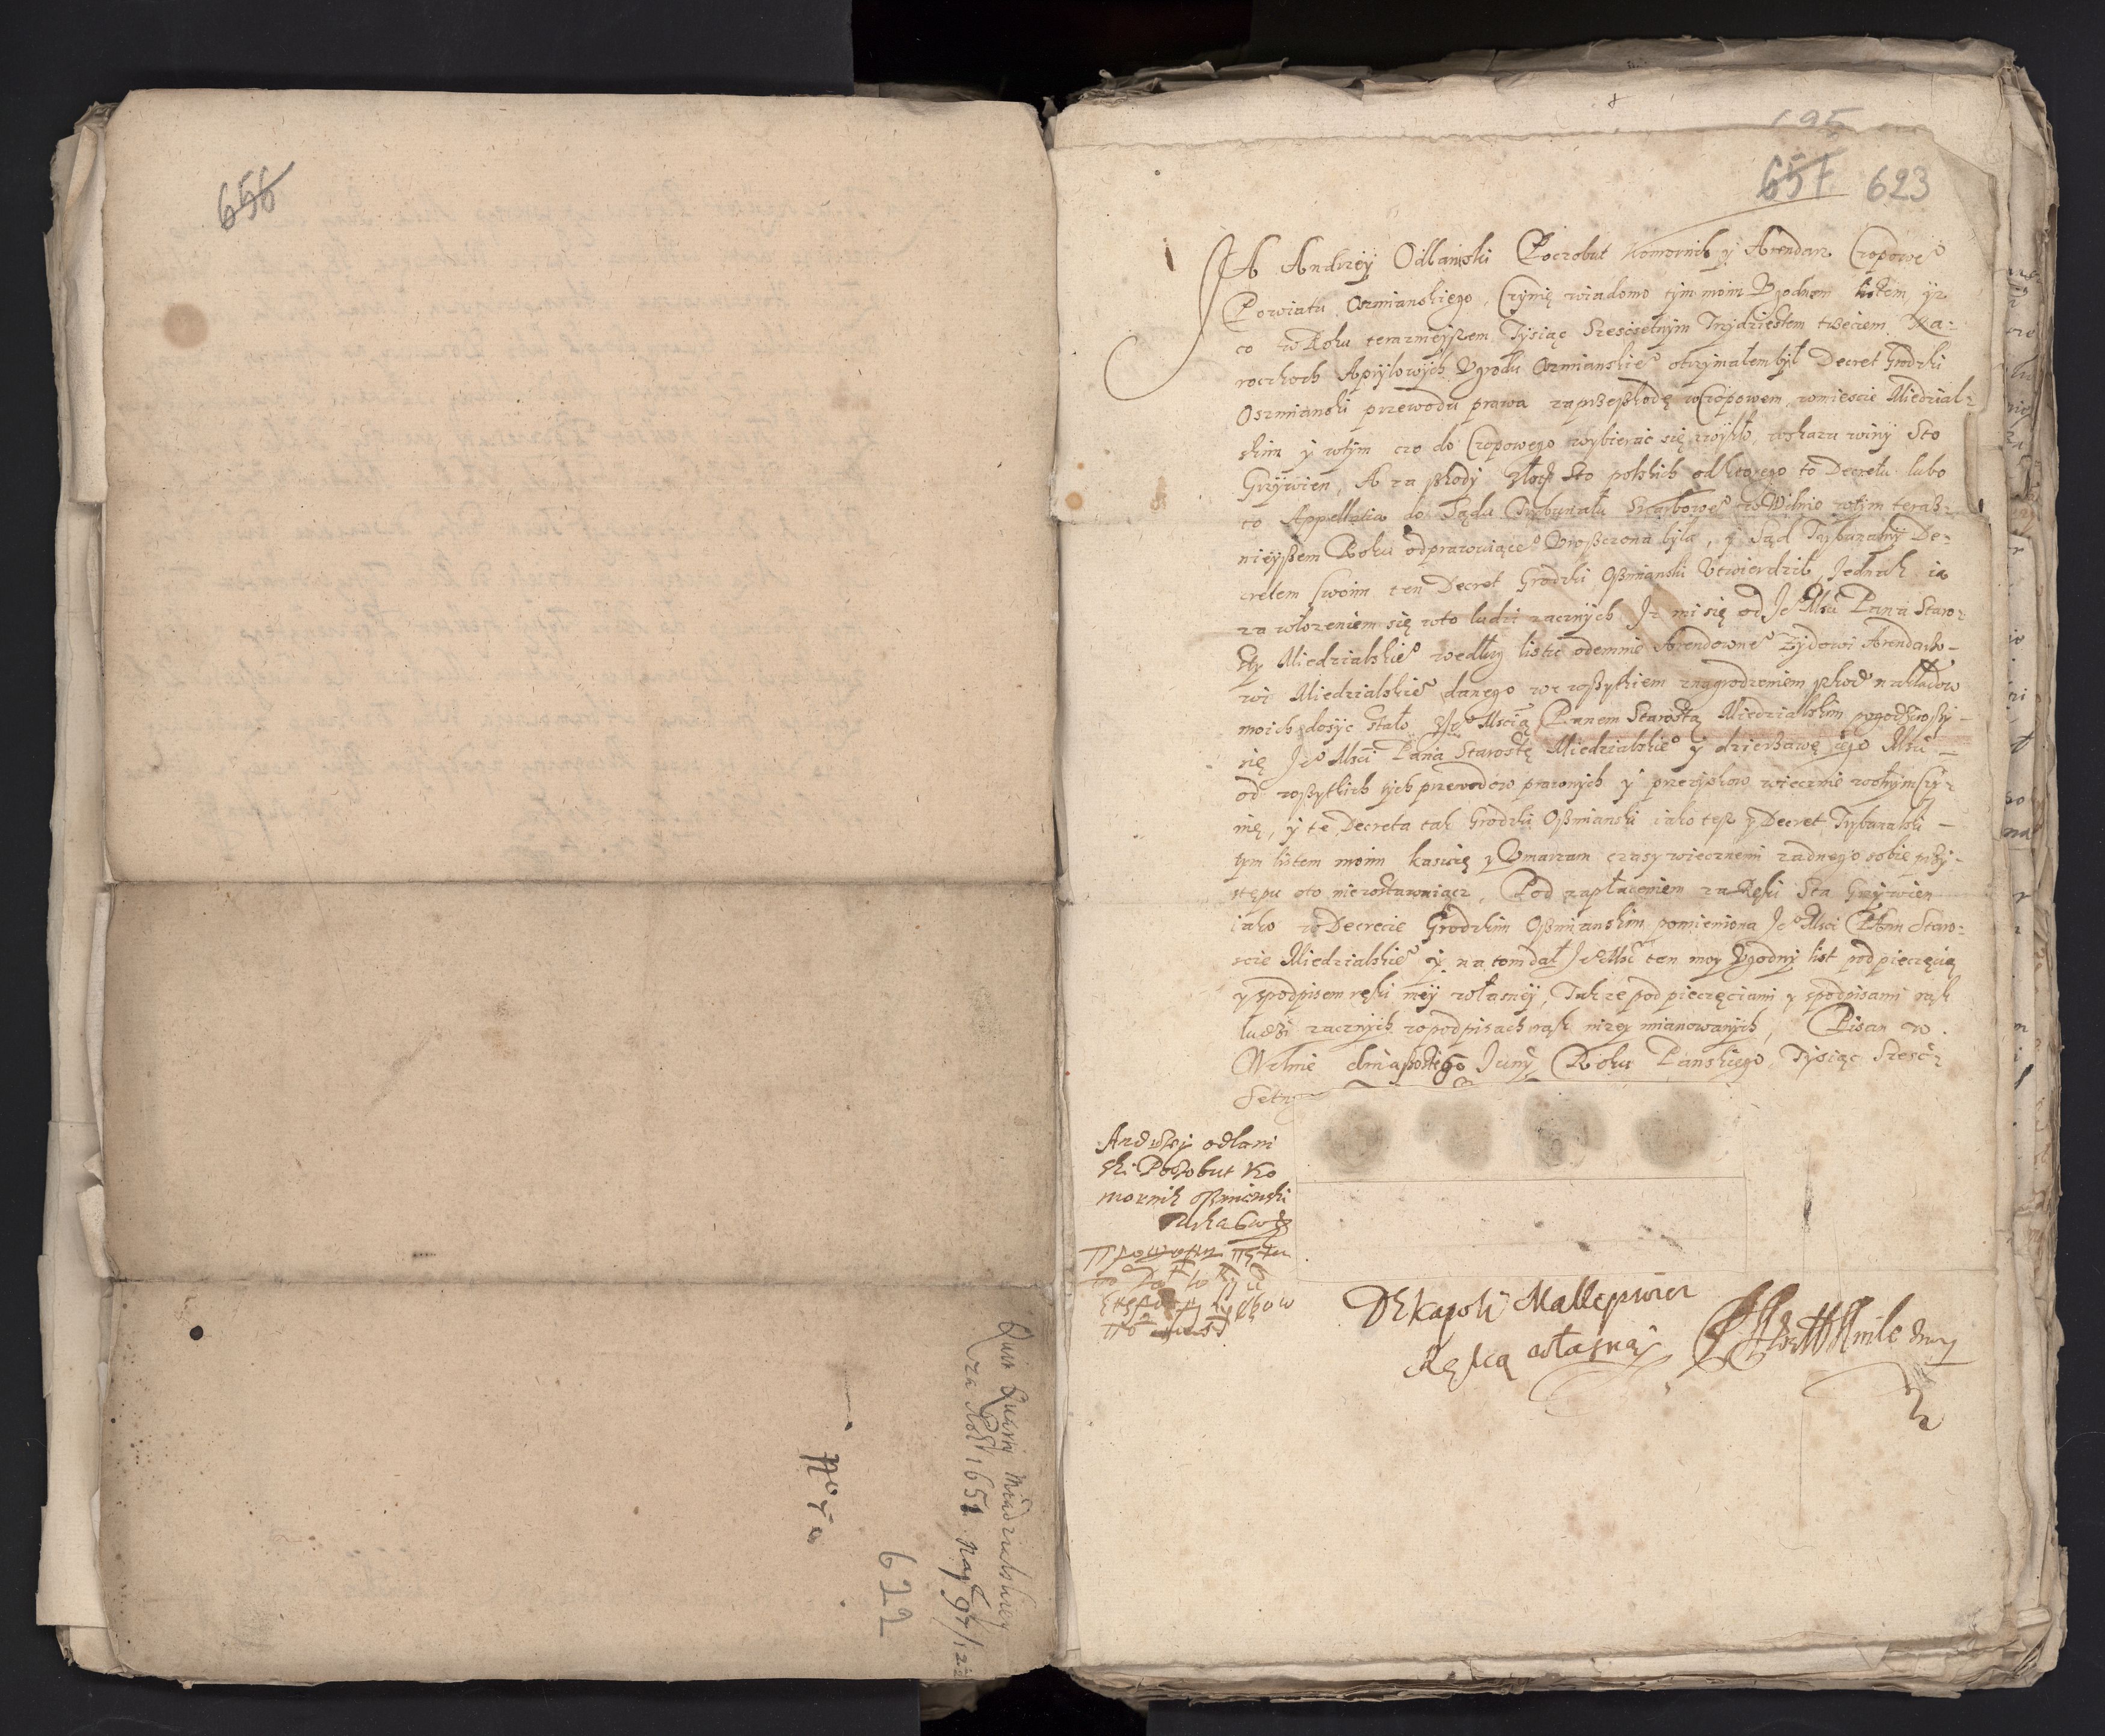 656
Quit Quarty Miadzielskiey
za Rok 1651 na
622
657 623
JA Andrzey Odlanicki Poczobut Komornik y Arendarz Czopowe°
Powiatu Oszmianskiego, Czynię wiadomo tym moim Ugodnem listem, yz
co w Roku teraznieyszem Tysiąc Szescsetnym Trzydziestem trzeciem Na
roczkoch Aprylowych w grodu Oszmianskie° otrzymałem był Decret Grodzki
Oszmianski przewodu prawa za przeszkodę w Czopowem, w miescie Miedzial-
skim y w tym czo do Czopowego wybierac się zwykło, wskazu winy Sto
Grzywien, A za szkody Złotych Sto polskich od ktorego to Decretu lubo
to Appellatia do Sądu Trybunału Skarbowe° w Wilnie w tym teraz-
nieyszem Roku odprawuiące° wnoszona była, y Sąd Trybunalny De-
cretem swoim ten Decret Grodzki Oszmianski Utwierdził, Jednak ia
za włozeniem się w to ludzi zacznych Jz mi się od Je° Mści Pana Staro-
sty Miedzialskie° według listu odemnie Arendowne° Zydowi Arendarzo-
wi Miedzialskie° danego ze wszytkiem nagrodzeniem szkod nakładow
moich dosyc stało z Je° Mscią Panem Starostą Miedzialskim pogodziwszy
się Je° Msci Pana Starostę Miedzialskie° y dzierzawę iego Msci
od wszytkich tych przewodow prawnych y przezyskow wiecznie wolnym Czy-
nię, y te Decreta tak Grodzki Oszmianski iako tesz y Decret Trybunalski
tym listem moim kasuię y Umarzam czasy wiecznemi zadnego sobie przy-
stępu o to niezostawuiącz, Pod zapłaceniem zaręki Sta Grzywien
iako w Decrecie Grodzkim Oszmianskim pomieniona Je° Msci Panu Staro-
scie Miedzialskie° y na tom dał Je° Msci ten moy Ugodny list pod pieczęcią
y s podpisem ręki mey własney, Takze pod pieczęciami y s podpisami rąk
ludzi zacznych w podpisach rąk nizey mianowanych, Pisan w
Wilnie dnia szostego Juny Roku Panskiego, Tysiąc Szesc-
Setn
Andrzey odlani
cki Poczobut Ko
mornik oszmianski
ręką swą
Ręką własną